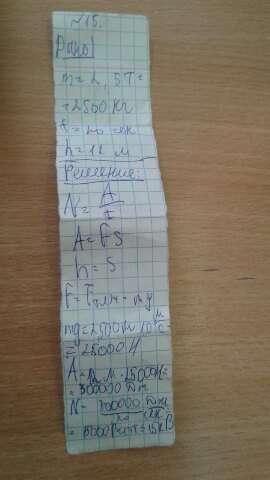 №15.
Дано:
m = 2,5т =
= 2500 кг
t = 20 сек
h = 12 м
Решение:
N = A/t
A = FS
h = S
F = Fтяж = mg
mg = 2500кг · 10 м/с² =
= 25000 Н
A = 12 м · 25000Н =
= 300000 Дж
N = 300000 Дж / 20